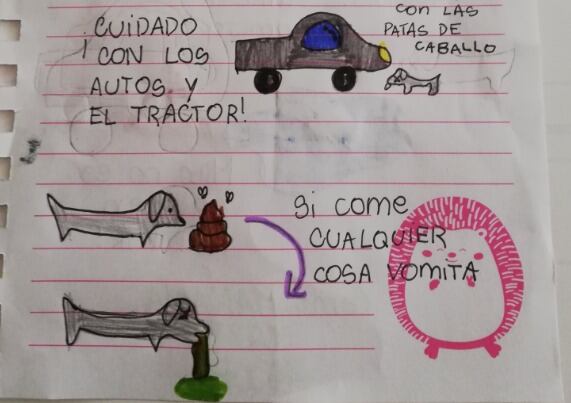 CON LAS
PATAS DE
CABALLO
¡CUIDADO
CON LOS
AUTOS Y
EL TRACTOR!
Si come
CUALQUIER
COSA VOMITA